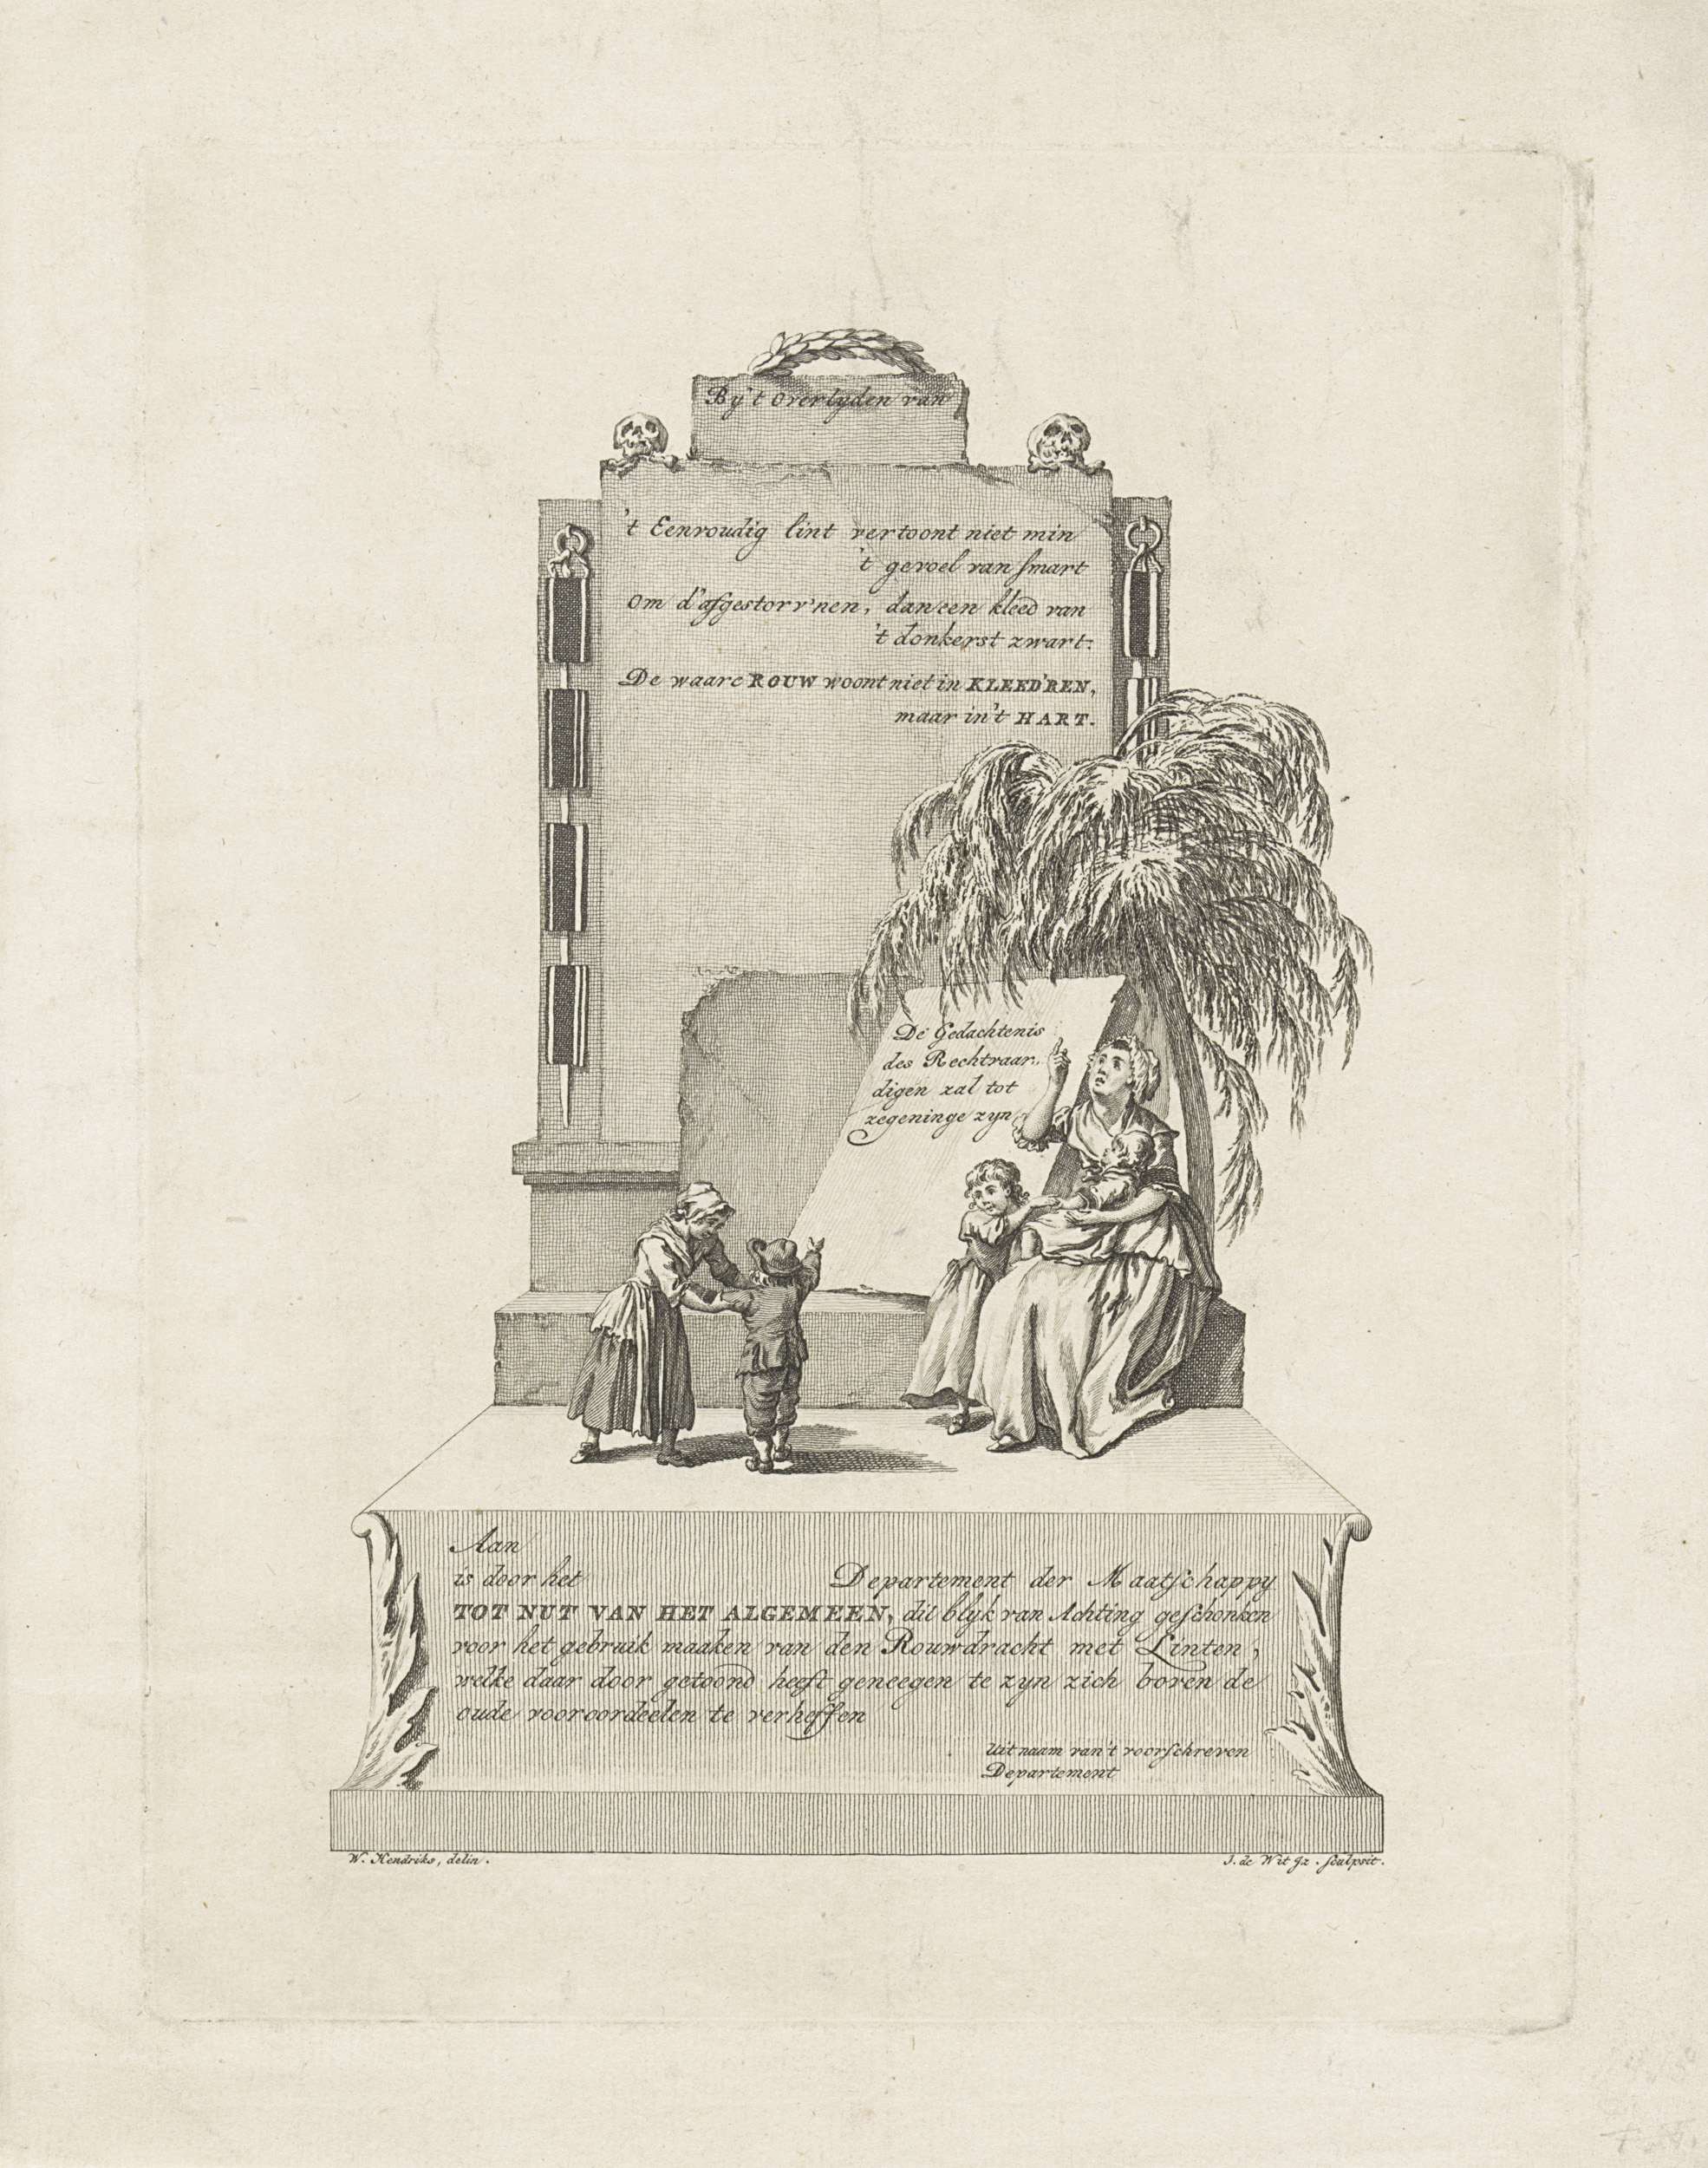 By 't Overlyden van
't Eenvoudig lint vertoont niet min
't gevoel van smart
Om d'afgestorv'nen, dan een kleed van
't donkerst zwart.
De waare ROUW woont niet in KLEED'REN,
maar in 't HART.
De Gedachtenis
des Rechtvaar,
digen zal tot
zegeninge zyn
Aan
is door het Departement der Maatschappy
TOT NUT VAN HET ALGEMEEN, dit blyk van Achting geschonken
voor het gebruik maaken van den Rouwdracht met Linten,
welke daar door getoond heeft geneegen te zyn zich boven de
oude vooroordeelen te verheffen
Uit naam van 't voorschreven
Departement
W. Hendriks, delin.
J. de Wit Jz. sculpsit.